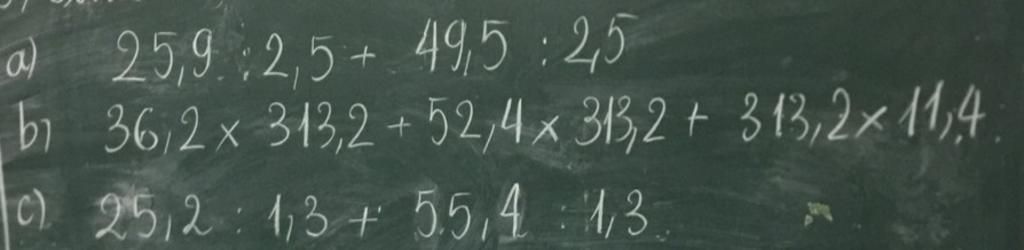 a) 25,9 : 2,5 + 49,5 : 2,5
b) 36,2 x 313,2 + 52,4 x 313,2 + 313,2 x 11,4
c) 25,2 : 1,3 + 55,4 : 1,3